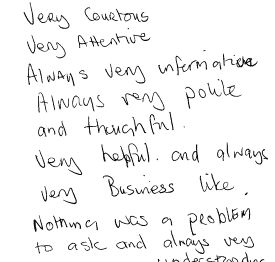 Very Courteous
Very Attentive
Always very informative
Always very polite
and thoughtful.
Very helpful. and always
very Business like.
Nothing was a problem
to ask and always very
understanding